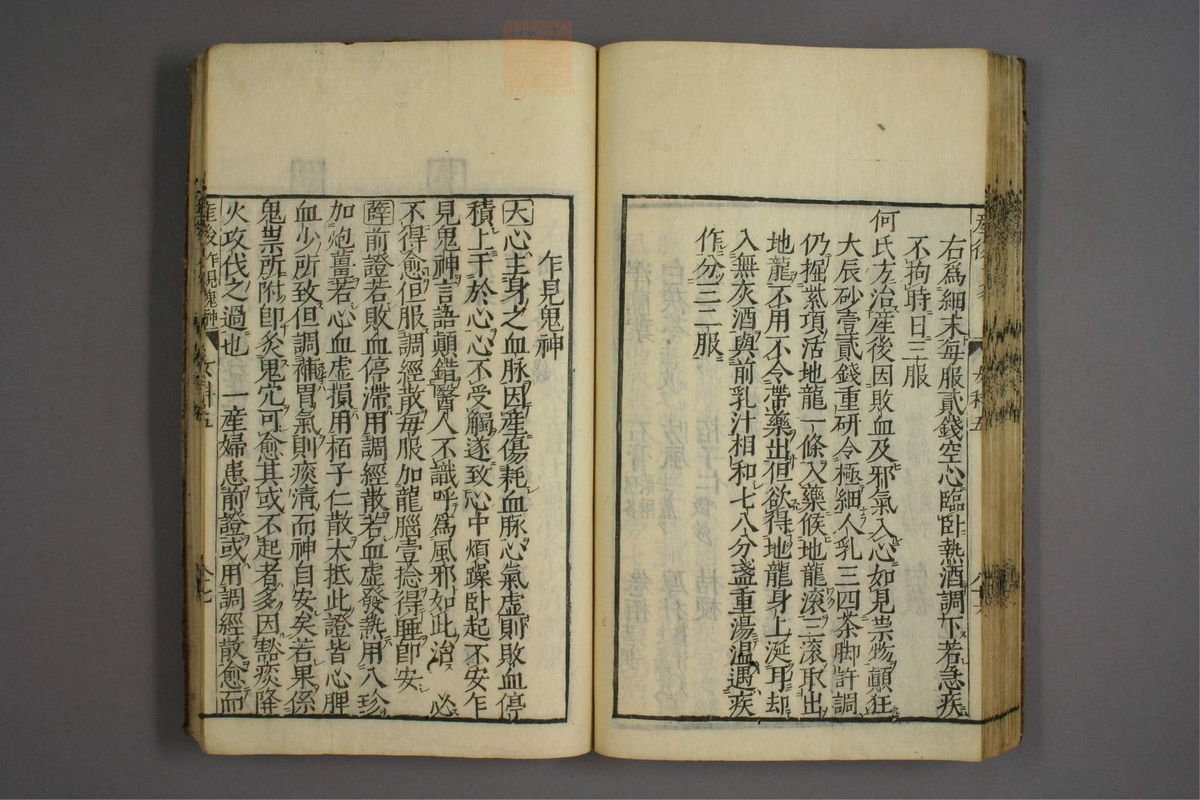 右爲細末每服貳錢空心臨臥熱酒調下若急疾
不拘時日三服
何氏方治產後因敗血及邪氣入心如見祟物顛狂
大辰砂壹貳錢重研令極細人乳三四茶脚許調
仍掘紫項活地龍一條入藥候地龍滾三滾取出
地龍不用不令帶藥出但欲得地龍身上涎耳却
入無灰酒與前乳汁相和七八分盞重湯溫遇疾
作分三二服
乍見鬼神
大心主身之血脉因產傷耗血脉心氣虛則敗血停
積上干於心心不受觸遂致心中煩躁臥起不安乍
見鬼神言語顛錯醫人不識呼爲風邪如此治必
不得愈但服調經散每服加龍腦壹捻得睡卽安
薛前證若敗血停滯用調經散若血虛發熱用八珍
加炮薑若心血虛損用栢子仁散大抵此證皆心脾
血少所致但調補胃氣則痰淸而神自安矣若果係
鬼祟所附卽灸鬼穴可愈其或不起者多因豁痰降
火攻伐之過也 一產婦患前證或用調經散愈而
產後乍見鬼神